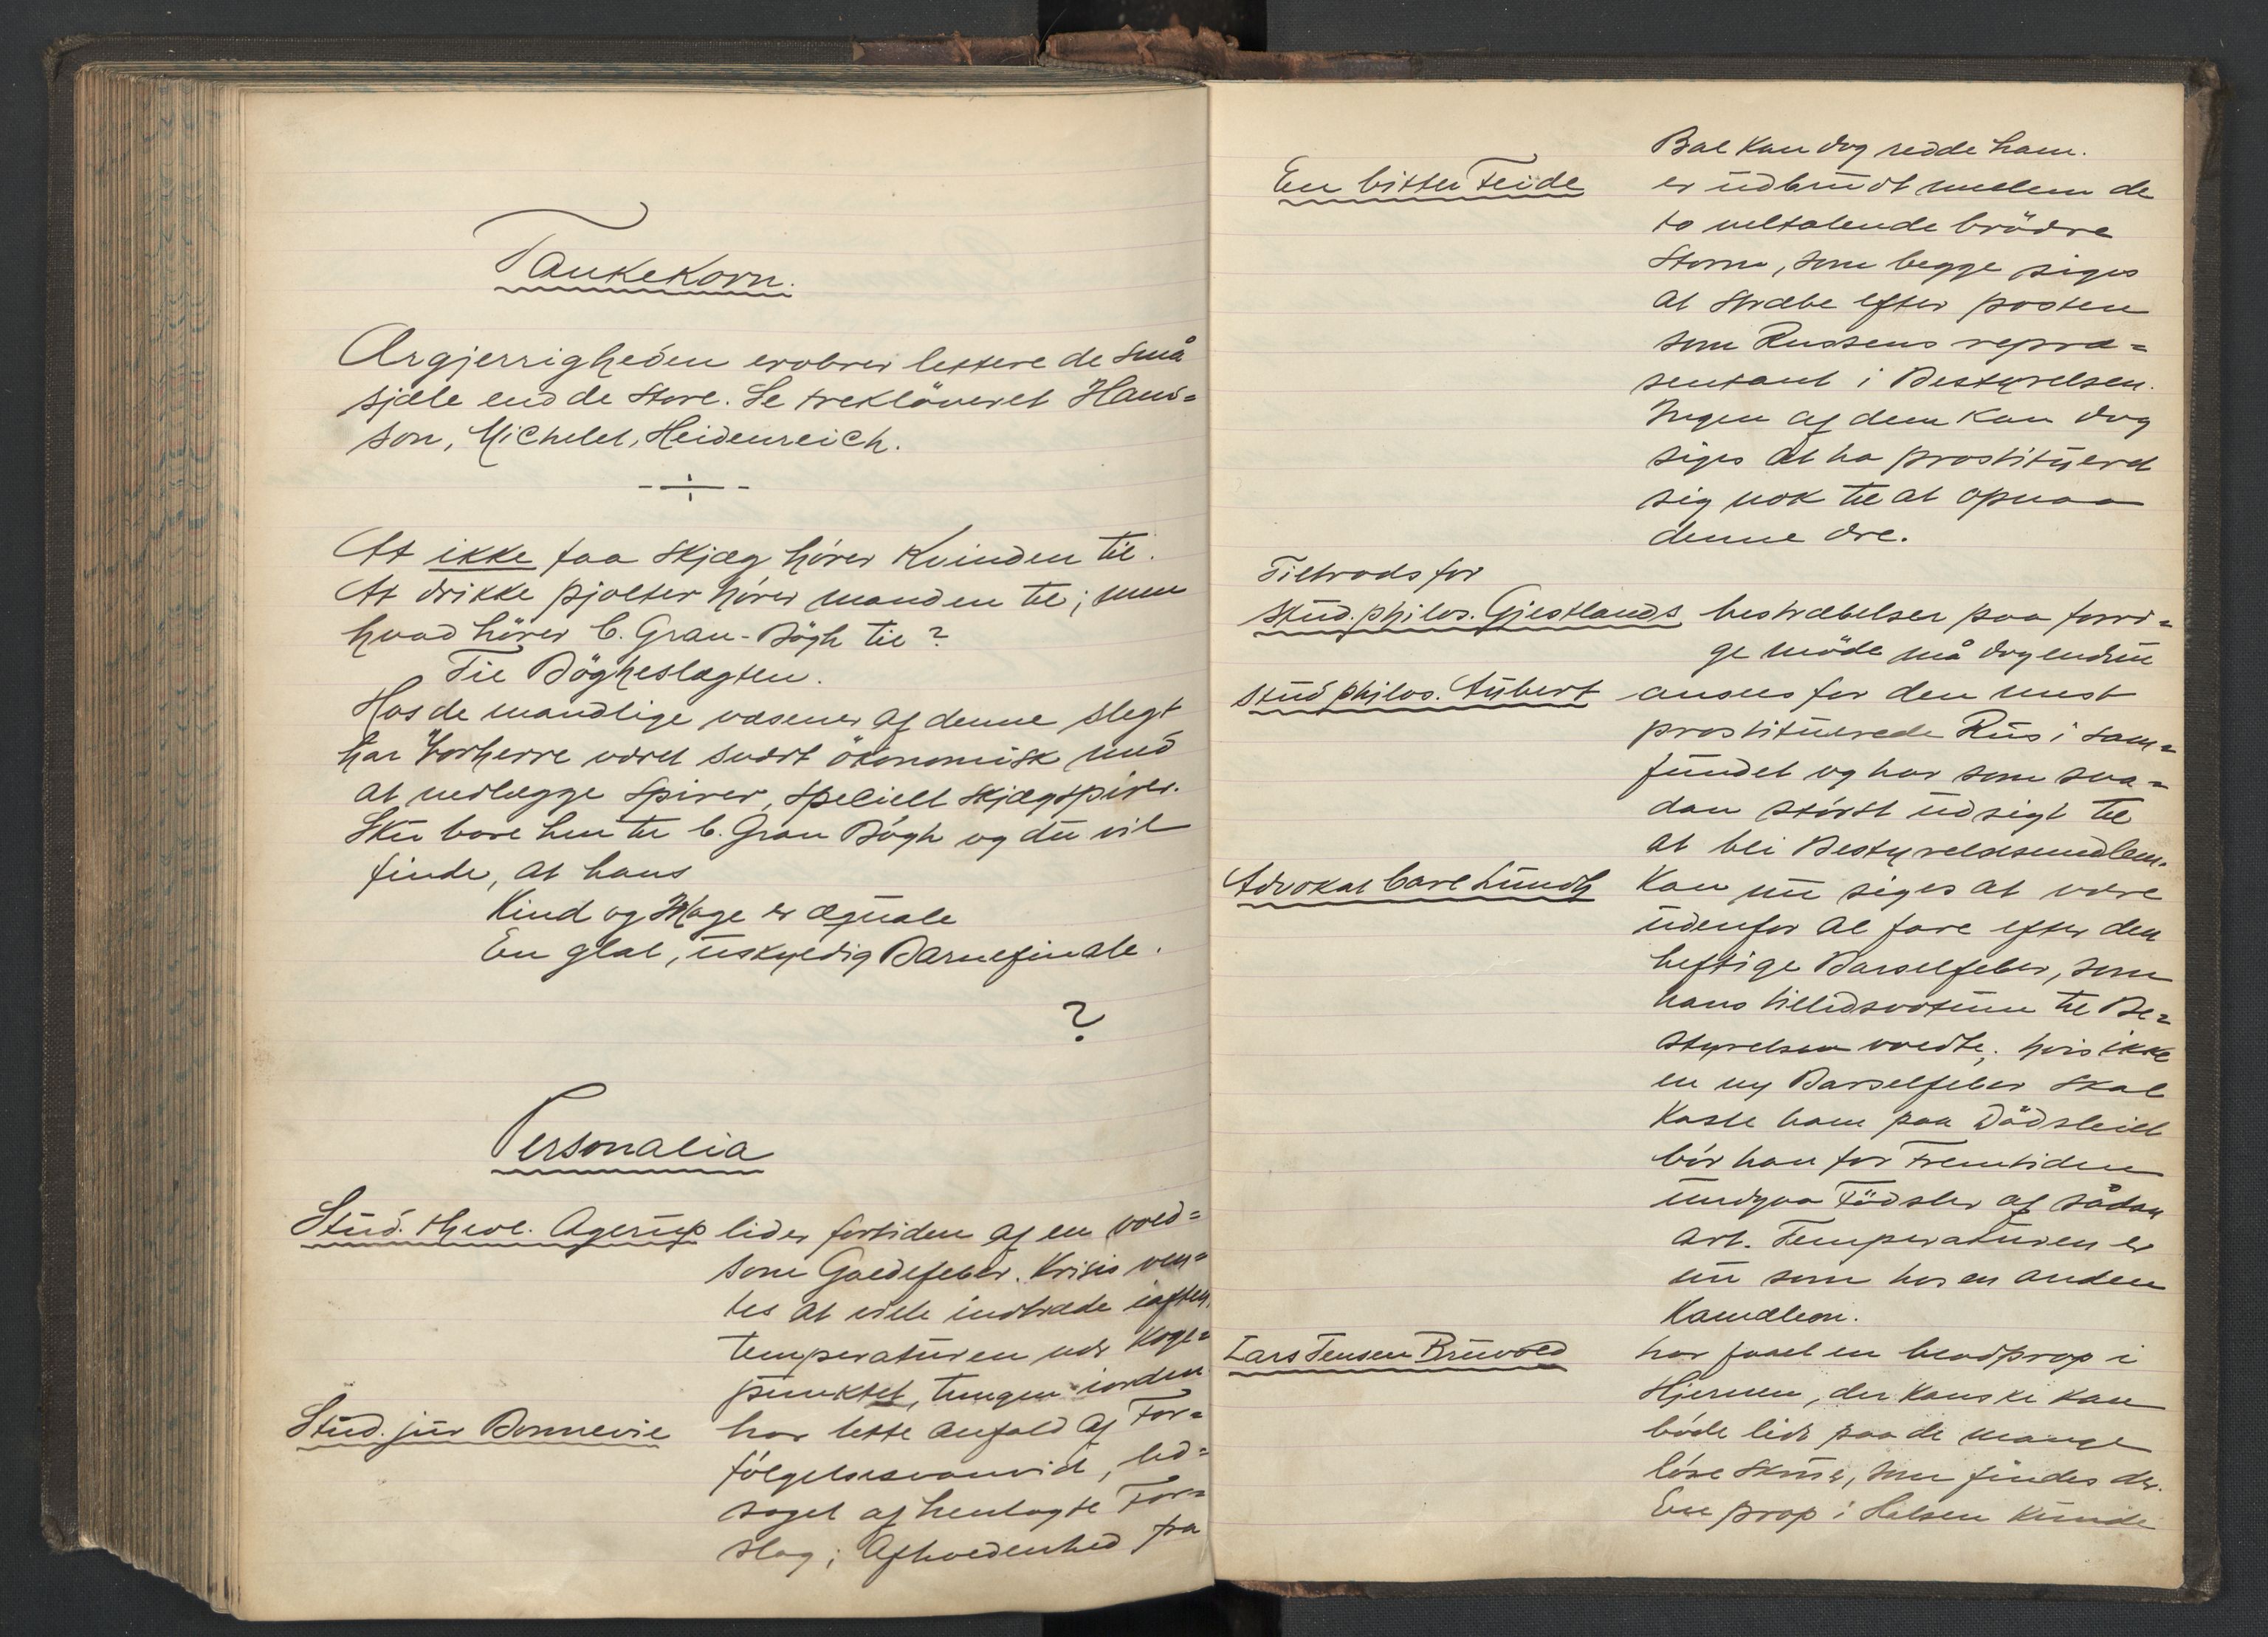 Tankekorn.
Ærgjerrigheden erobrer lettere de små
sjæle end de store. Se trekløveret Hans=
son, Michelet, Heidenreich.
At ikke faa Skjæg hører Kvinden til.
At drikke pjolter hører manden til; men
hvad hører C. Gran-Bøgh til?
Til Bøgheslægten.
Hos de mandlige væsener af denne slegt
har Vorherre været svært økonomisk med
at nedlægge spirer, specielt skjægspirer.
Sku bare hen til C. Gran Bøgh og du vil
finde, at hans
Kind og Mage er æquale
En glat, uskyldig Barnefinale.
?
Personalia
Stud. theol. Agerup lider fortiden af en vold=
som Galdefeber. Krisis ven=
tes at ville indtræde iaften,
temperaturen nær Koge=
punktet, tungen iorden
Stud. jur Bonnevie har lette anfald af For=
følgelsesvanvid, led=
saget af henlagte For=
slag; Afholdenhed fra
Bal kan dog redde ham.
En bitter Feide er udbrudt mellem de
to veltalende brødre
Storm, som begge siges
at stræbe efter posten
som Russens repræ=
sentant i Bestyrelsen.
Ingen af dem kan dog
siges at ha prostitueret
sig nok til at opnaa
denne ære.
Tiltrods for
stud. philos. Gjestlands bestræbelser paa forri=
ge møde må dog endnu
stud philos. Aubert ansees for den mest
prostituerede Rus i sam=
fundet og har som saa=
dan størst udsigt til
at bli Bestyrelsesmedlem.
Advokat Carl Lundh Kan nu siges at være
udenfor al fare efter den
heftige Barselfeber, som
hans tillidsvotum til Be=
styrelsen voldte; hvis ikke
en ny Barselfeber skal
kaste ham paa Dødsleiet
bør han for Fremtiden
undgaa Fødsler af sådan
art. Temperaturen er
nu som hos en anden
Kamæleon.
Lars Jensen Bruvold har faaet en blodprop i
Hjernen, der kanske kan
bøde lidt paa de mange
løse skruer, som findes der.
En prop i Halsen kunde